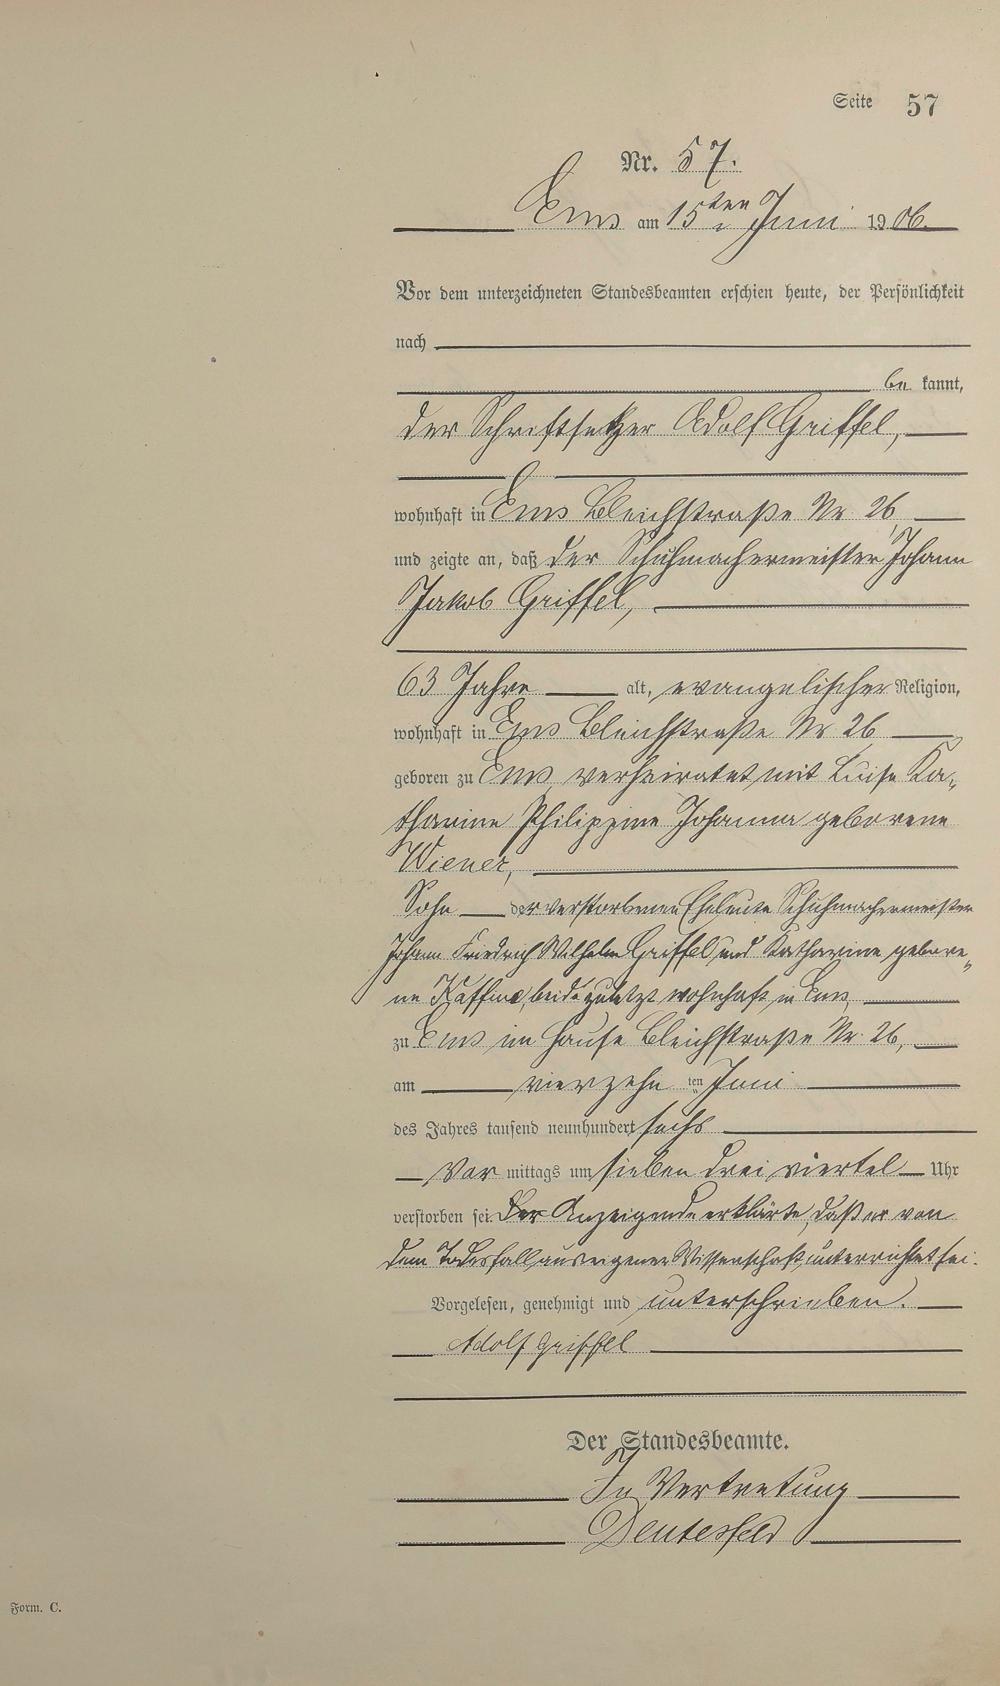 Seite 57
Nr. 57.
Ems am 15ten Juni 1906.
Vor dem unterzeichneten Standesbeamten erschien heute, der Persönlichkeit
nach
be kannt,
der Schriftsetzer Adolf Griffel,
wohnhaft in Ems Bleichstraße Nr 26,
und zeigte an, daß der Schuhmachermeister Johann
Jakob Griffel,
63 Jahre alt, evangelischer Religion,
wohnhaft in Ems Bleichstraße Nr 26
geboren zu Ems, verheiratet mit Luise Ka-
tharine Philippine Johanna geborene
Wiener,
Sohn der verstorbenen Eheleute Schuhmachermeister
Johann Friedrich Wilhelm Griffel und Katharine gebore-
ne beide zuletzt wohnhaft in Ems,
zu Ems im Hause Bleichstraße Nr. 26,
am vierzehn ten Juni
des Jahres tausend neunhundert sechs
Vor mittags um sieben drei viertel Uhr
verstorben sei. Der Anzeigende erklärte, daß er von
dem Todesfall aus eigener Wissenschaft unterrichtet sei.
Vorgelesen, genehmigt und unterschrieben.
Adolf Griffel
Der Standesbeamte.
In Vertretung
Form. C.